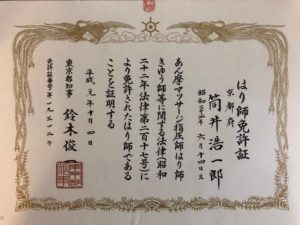 はり師免許証
京都府
筒井浩一郎
昭和三十一年六月十四日生
あん摩マッサージ指圧師はり師
きゆう師等に関する法律(昭和
二十二年法律第二百十七号)に
より免許されたはり師である
ことを証明する
平成元年十月四日
東京都知事 鈴木俊一
免許証番号第一九三一二号